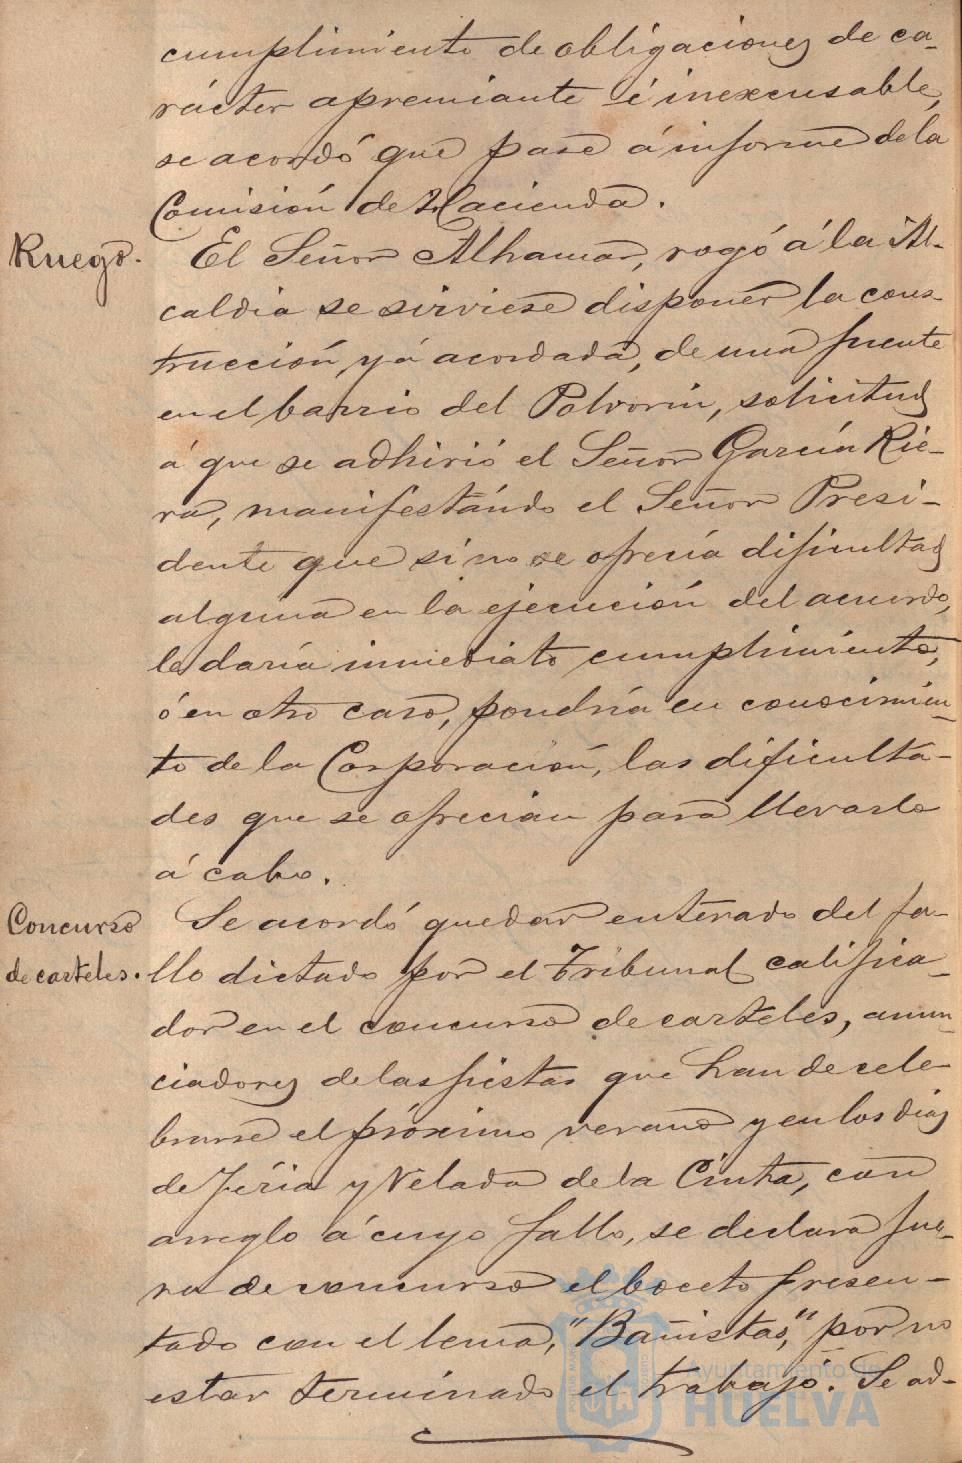 cumplimiento de obligaciones de ca-
rácter apremiante é inexcusable,
se acordó que pase á informe de la
Comisión de Hacienda.
Ruego.
El Señor Alhamar, rogó á la Al-
caldia se sirviese disponer la cons-
trucción yá acordada, de una fuente
en el barrio del Polvorin, solicitud
á que se adhirió el Señor García Rie-
ra, manifestándo el Señor Presi-
dente que si no se ofrecía dificultad
alguna en la ejecución del acuerdo,
le daría inmediato cumplimiento,
ó en otro caso, pondría en conocimien-
to de la Corporación, las dificulta-
des que se ofrecian para llevarlo
á cabo.
Concurso
de carteles.
Se acordó quedar enterado del fa-
llo dictado por el Tribunal califica-
dor en el concurso de carteles, anun-
ciadores de las fiestas que han de cele-
brarse el próximo verano y en los dias
de Féria y Velada de la Cinta, con
arreglo á cuyo fallo, se declara fue-
ra de concurso el boceto presen-
tado con el lema, "Bañistas," por no
estar terminado el trabajo. Se ad-
Ayuntamiento de
HUELVA